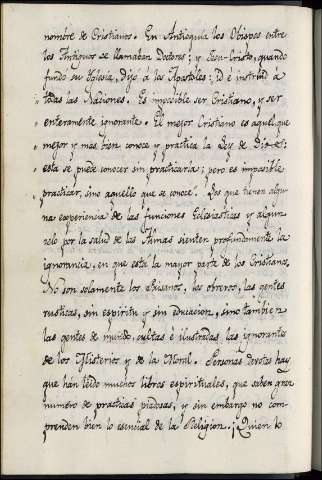 nombre de Cristianos. En Antioquia los Obispos entre
los Antiguos se llamaban Doctores; y Jesu-Cristo, quando
fundó su Yglesia, dijo á las Apostoles; id é instruid á
todas las Naciones. Es imposible ser Cristiano, y ser
enteramente ignorante. El mejor Cristiano es aquel, que
mejor y mas bien conoce y practica la Ley de Dios:
esta se puede conocer sin practicarla; pero es imposible
practicar, sino aquello que se conoce. Los que tienen algu-
na experiencia de las funciones Eclesiasticas y algun
zelo por la salud de las Almas sienten profundamente la
ignorancia, en que está la mayor parte de los Cristianos.
No son solamente los Paisanos, los obreros, las gentes
rusticas, sin espiritu y sin educacion, sino tambien
las gentes de mundo, cultas é ilustradas, las ignorantes
de los Misterios y de la Moral. Personas devotas hay
que han leido muchos libros espirituales, que saben gran
numero de practicas piadosas, y sin embargo no com-
prenden bien lo esencial de la Religion. ¡Quien lo